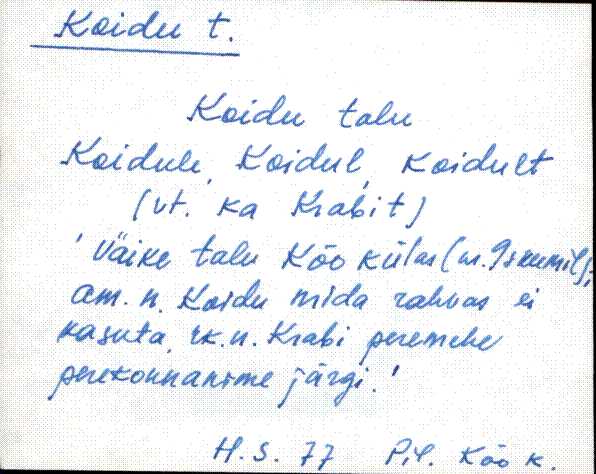 Koidu t.
Koidu talu
Koidule, Koidul, Koidult
(vt. ka Krabit)
'Väike talu Kõo külas (
am. n. Koidu mida rahvas ei
kasuta, rk. n. Krabi peremehe
perekonnanime järgi.'
H. S. 77 Pil Kõo k.